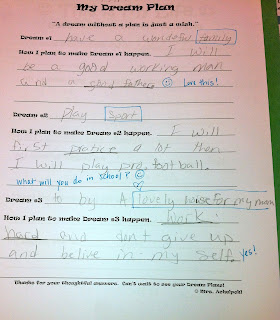 My Dream Plan
"A dream without a plan is just a wish."
Dream #1 have a wonderful family
How I plan to make Dream #1 happen. I will
be a good working man
and a good fathers ☺ Love this!
Dream #2 Play Sport
How I plan to make Dream #2 happen. I will
first pratice a lot then
I will play pro football.
what will you do in school? ☺
Dream #3 to by A lovely house for my mom
How I plan to make Dream #3 happen. Work
hard and don't give up
and belive in my self yes!
Thanks for your thoughtful answers. Can't wait to see your Dream Plans!
© Mrs.